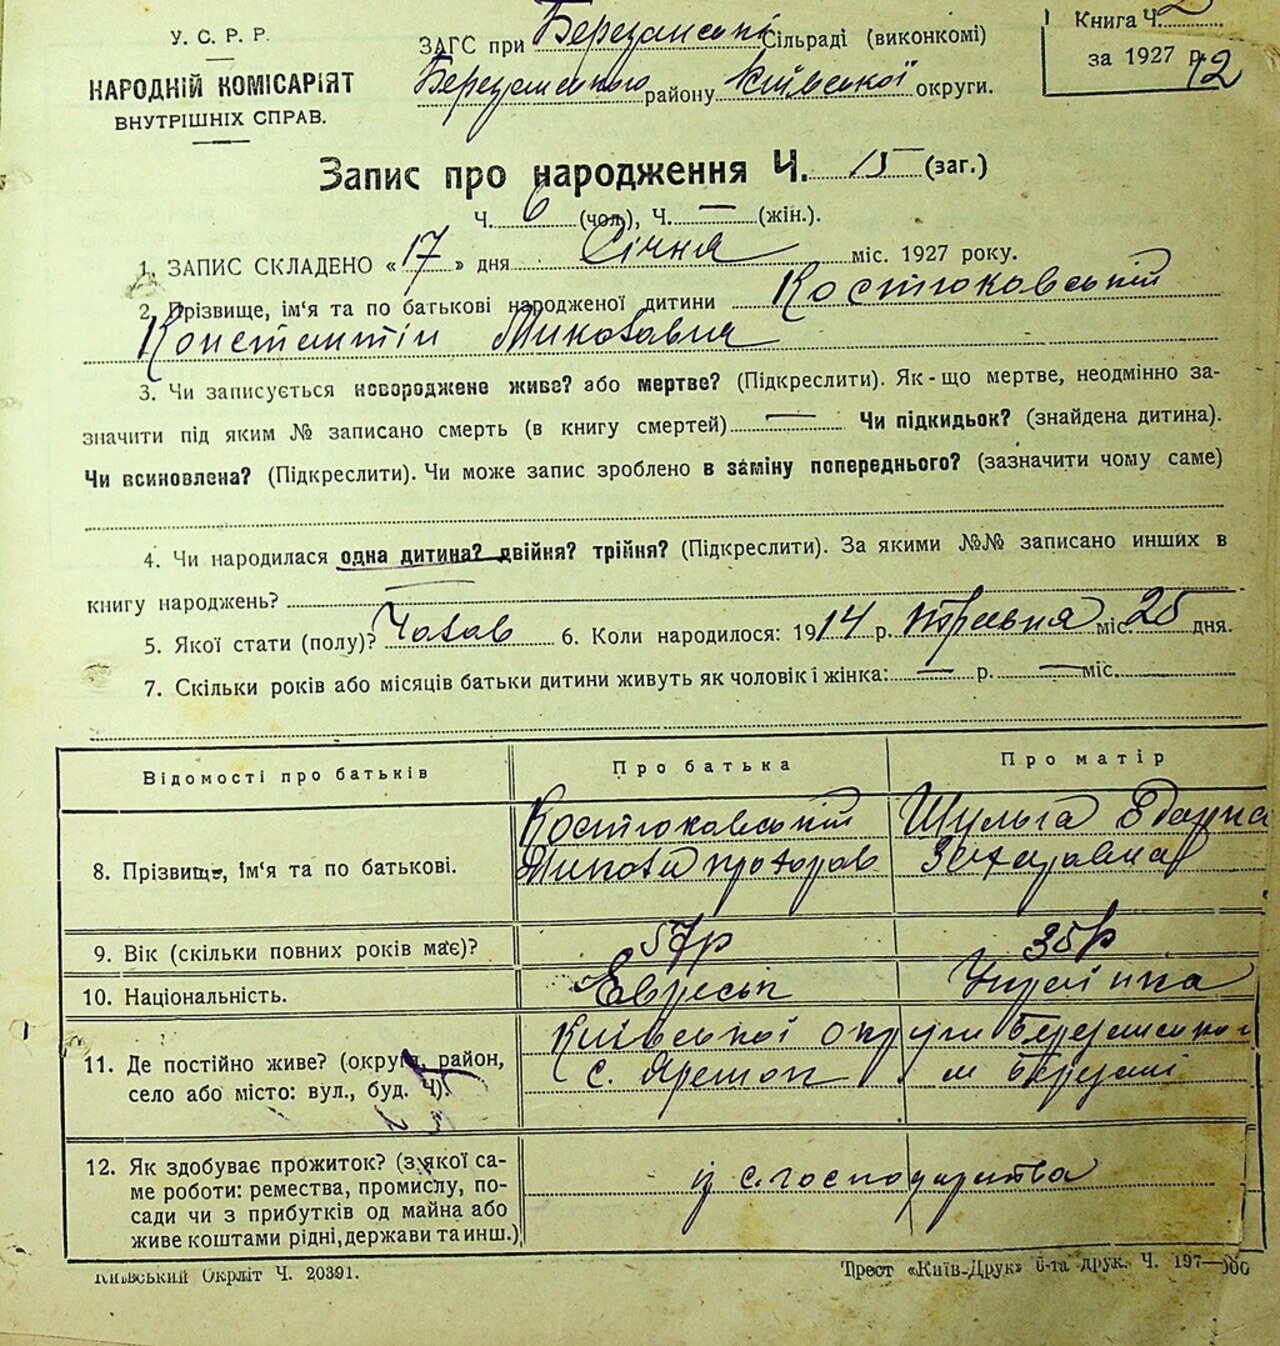 У. С. Р. Р.
НАРОДНІЙ КОМІСАРІЯТ
ВНУТРІШНІХ СПРАВ.
ЗАГС при Березанські Сільраді (виконкомі)
Березанського району Київської округи.
Книга Ч. 2
за 1927 р.
12
Запис про народження Ч. 15 (заг.)
Ч. 6 (чол), Ч. — (жін.).
1. ЗАПИС СКЛАДЕНО «17» дня Січня міс. 1927 року.
2. Прізвище, ім'я та по батькові народженої дитини Костюковський
Константін Миколавия
3. Чи записується новороджене живе? або мертве? (Підкреслити). Як-що мертве, неодмінно за-
значити під яким № записано смерть (в книгу смертей) — Чи підкидьок? (знайдена дитина).
Чи всиновлена? (Підкреслити). Чи може запис зроблено в заміну попереднього? (зазначити чому саме)
4. Чи народилася одна дитина? двійня? трійня? (Підкреслити). За якими №№ записано инших в
книгу народжень?
5. Якої стати (полу)? Чолов 6. Коли народилося: 1914 р. травня міс. 25 дня.
7. Скільки років або місяців батьки дитини живуть як чоловік і жінка: — р. — міс.
Відомості про батьків Про батька Про матір
8. Прізвище, ім'я та по батькові.
Костюковський Шульга Одарка
Микола Захаровна
9. Вік (скільки повних років має)? 57р 35р
10. Національність. Евреськ Украінка
11. Де постійно живе? (округа, район,
село або місто: вул., буд. Ч).
Київської округи Березанського
с. Яреш м Березані
12. Як здобуває прожиток? (з якої са-
ме роботи: ремества, промислу, по-
сади чи з прибутків од майна або
живе коштами рідні, держави та инш.)
із с. господарства
Київський Окрліт Ч. 20391.
Трест «Київ-Друк» 6-та друк. Ч. 197—